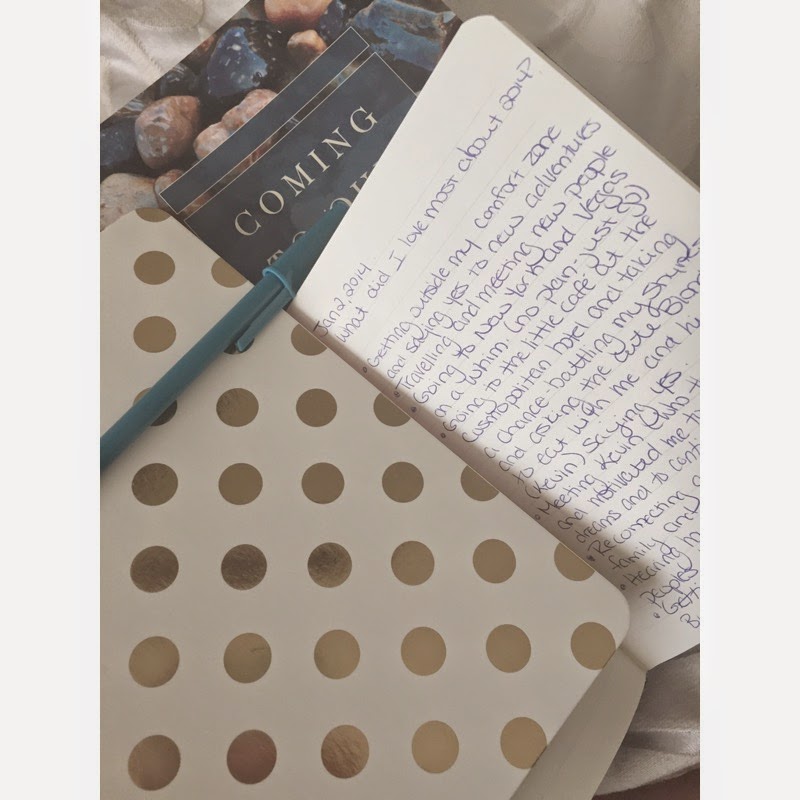 COMING
Jan 2 2014
What did I love most about 2014?
• Getting outside my comfort zone
and saying yes to new adventures
• Travelling and meeting new people
• Going to New York and Vegas
on a whim. (no plan- just go)
• Going to the little café at the
Cosmopolitan hotel and taking
a chance battling my shyne-
and asking the cute Blon
to eat with me and hi
(Kevin) saying yes
• Meeting Kevin (who
and motivated me
dreams and to conti
• Reconnecting
family and
• Hearing
peoples
• Getti